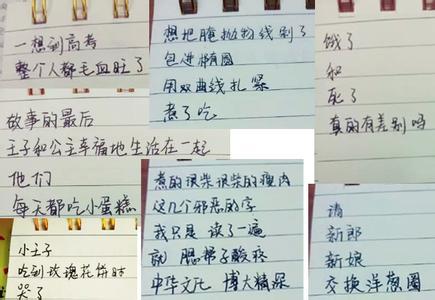 一想到高考
整个人都毛血旺了
想把腌抛物线剁了
包进椭圆
用双曲线扎紧
煮了吃
饿了
和
死了
真的有差别吗
故事的最后
王子和公主幸福地生活在一起
他们
每天都吃小蛋糕
煮的很柴很柴的瘦肉
这几个邪恶的字
我只是读了一遍
就腮帮子酸疼
中华文化 博大精深
请
新郎
新娘
交换洋葱圈
小王子
吃到玫瑰花饼时
哭了